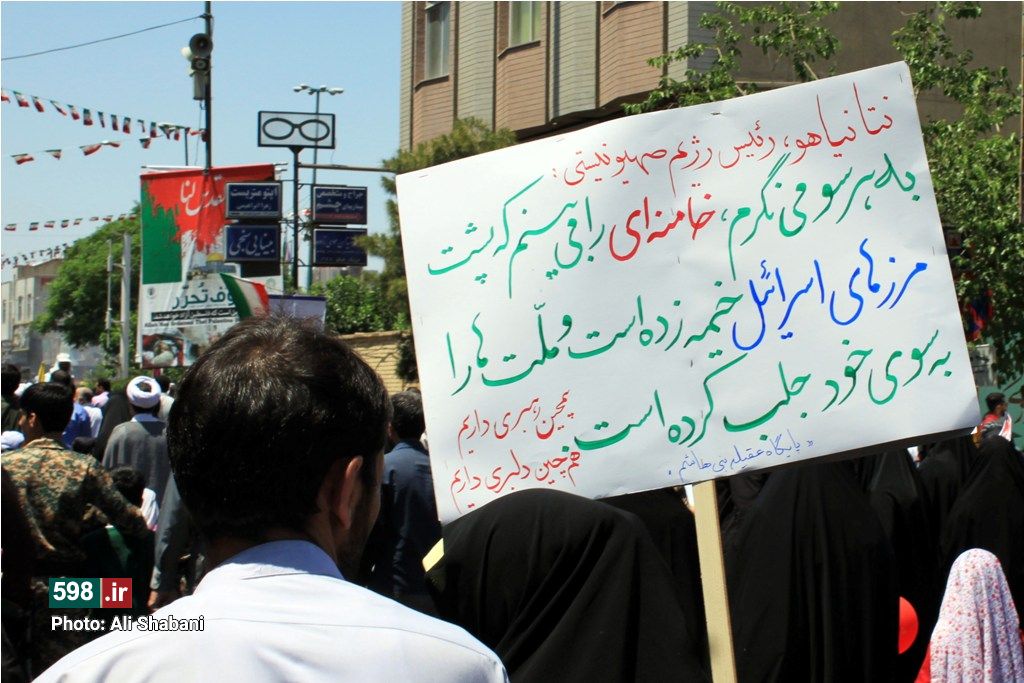 نتانیاهو، رئیس رژیم صهیونیستی:
به هر سو می نگرم، خامنه‌ای را می بینم که پشت
مرزهای اسرائیل خیمه زده است و ملّت ها را
به سوی خود جلب کرده است
همچین رهبری داریم
هم چین دلبری داریم
« پایگاه عقیله بنی هاشم »
اپتومتریست
جراح و متخصص
چشم
بینایی سنجی
598.ir
Photo: Ali Shabani